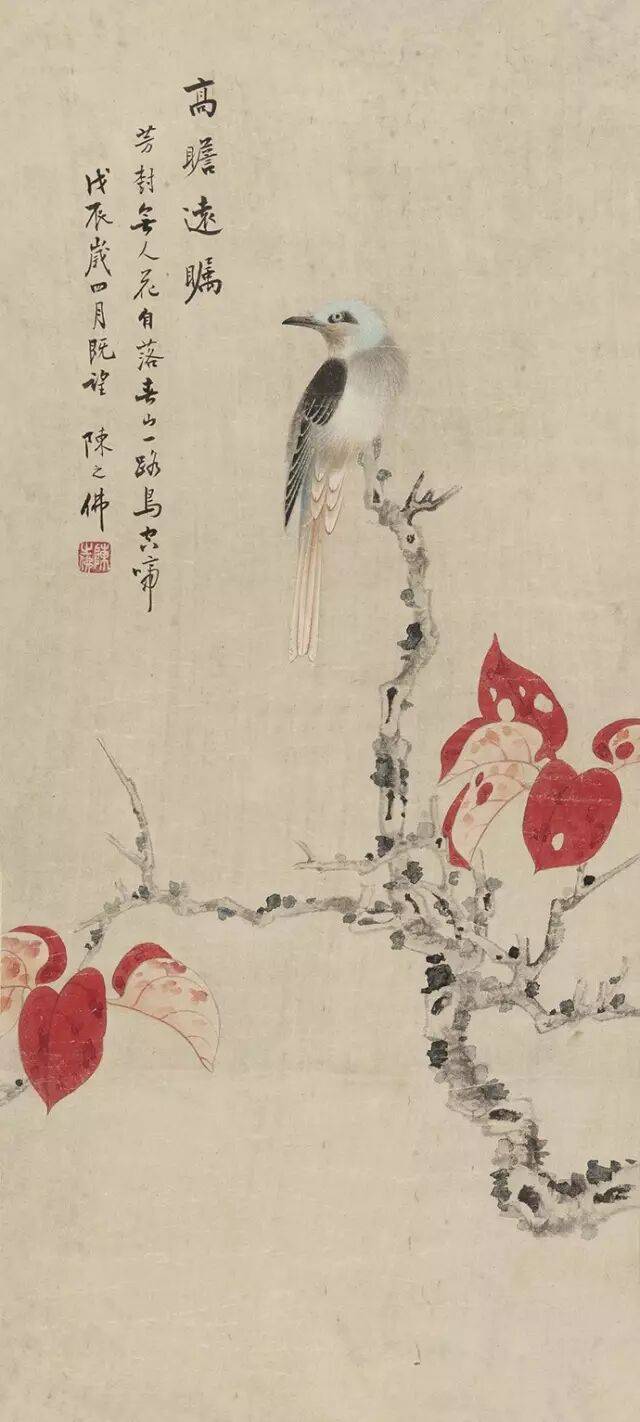 高瞻遠矚
芳封無人花自落春山一路鳥空啼
戊辰歲四月既望 陳之佛